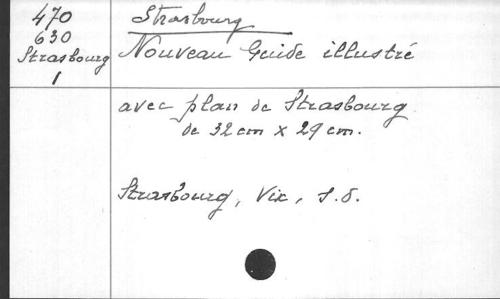 470
630
Strasbourg
1
Strasbourg
Nouveau Guide illustré
avec plan de Strasbourg
de 32 cm x 29 cm.
Strasbourg, Vix, s.d.